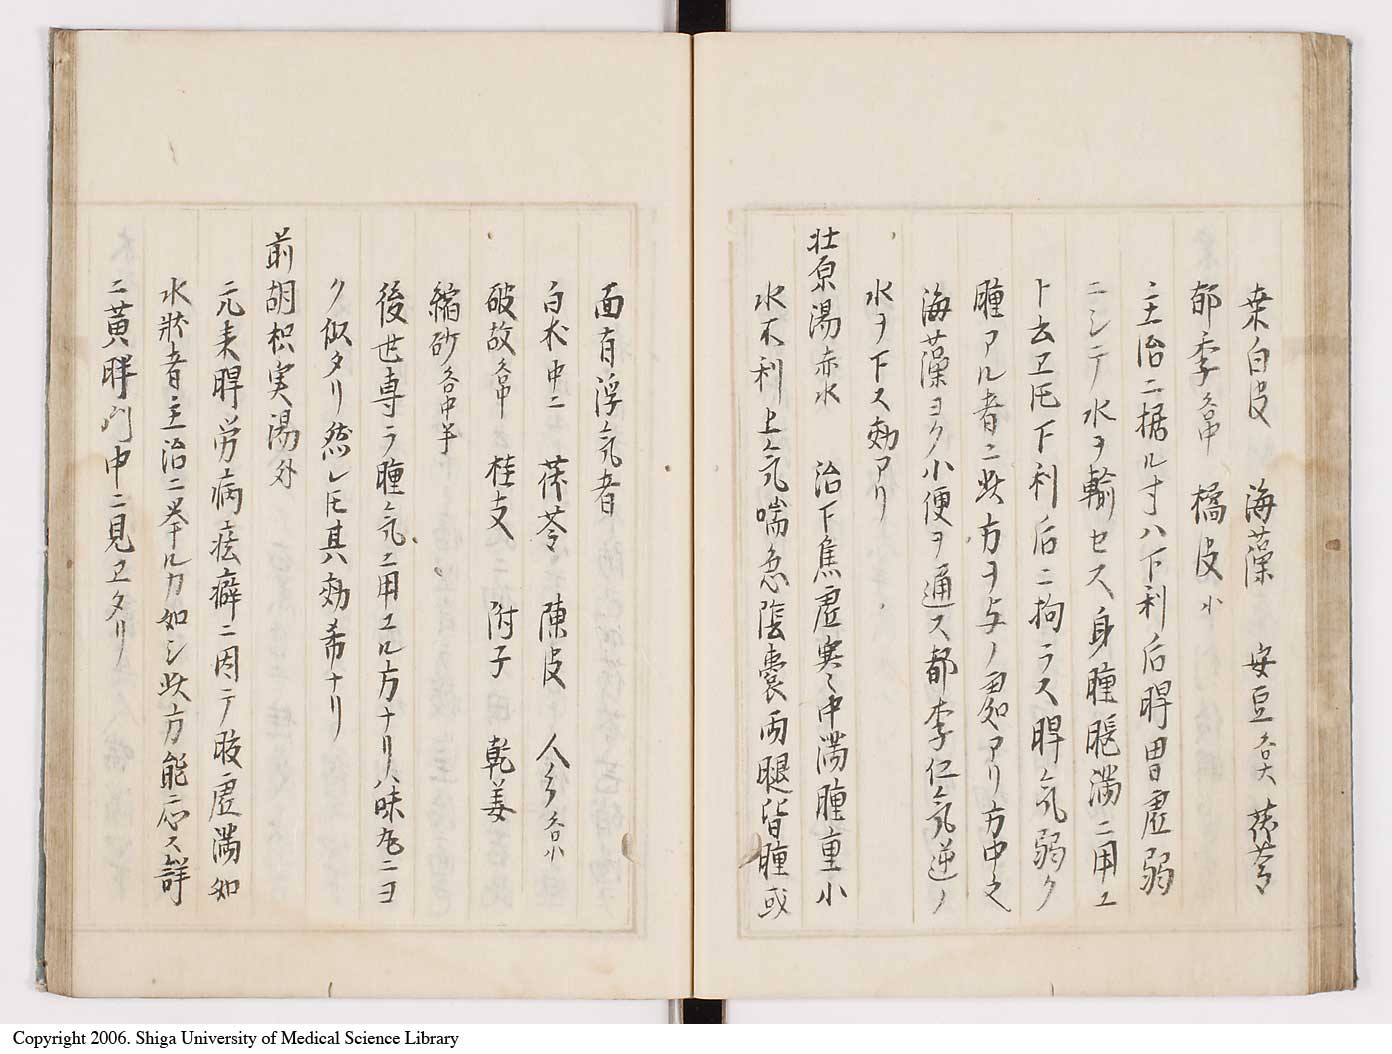 桒白皮　海藻　安豆各大　茯苓
郁李各中　橘皮小
主治ニ据ル寸ハ下利后脾胃虚弱
ニシテ水ヲ輸セス身腫脹満ニ用ユ
ト云ヱ𪜈下利后ニ拘ラス脾气弱ク
腫アル者ニ此方ヲ与ノ
海藻ヨク小便ヲ通ス郁李仁气逆ノ
水ヲ下ス効アリ
壮原湯赤水　治下焦虚寒〻中満腫重小
水不利上气喘急陰囊両腿皆腫或
面有浮气者
白朮中ニ　茯苓　陳皮　人参各小
破故各中　桂支　附子　乾姜
縮砂各中半
後世専ラ腫气ニ用ユル方ナリ八味丸ニヨ
ク似タリ然レ𪜈其効希ナリ
前胡枳実湯外
元来脾労病痃癖ニ因テ肢虚満如
水狀者主治ニ挙ルカ如シ此方能応ス詳
ニ黄胖門中ニ見ヱタリ
Copyright 2006. Shiga University of Medical Science Library